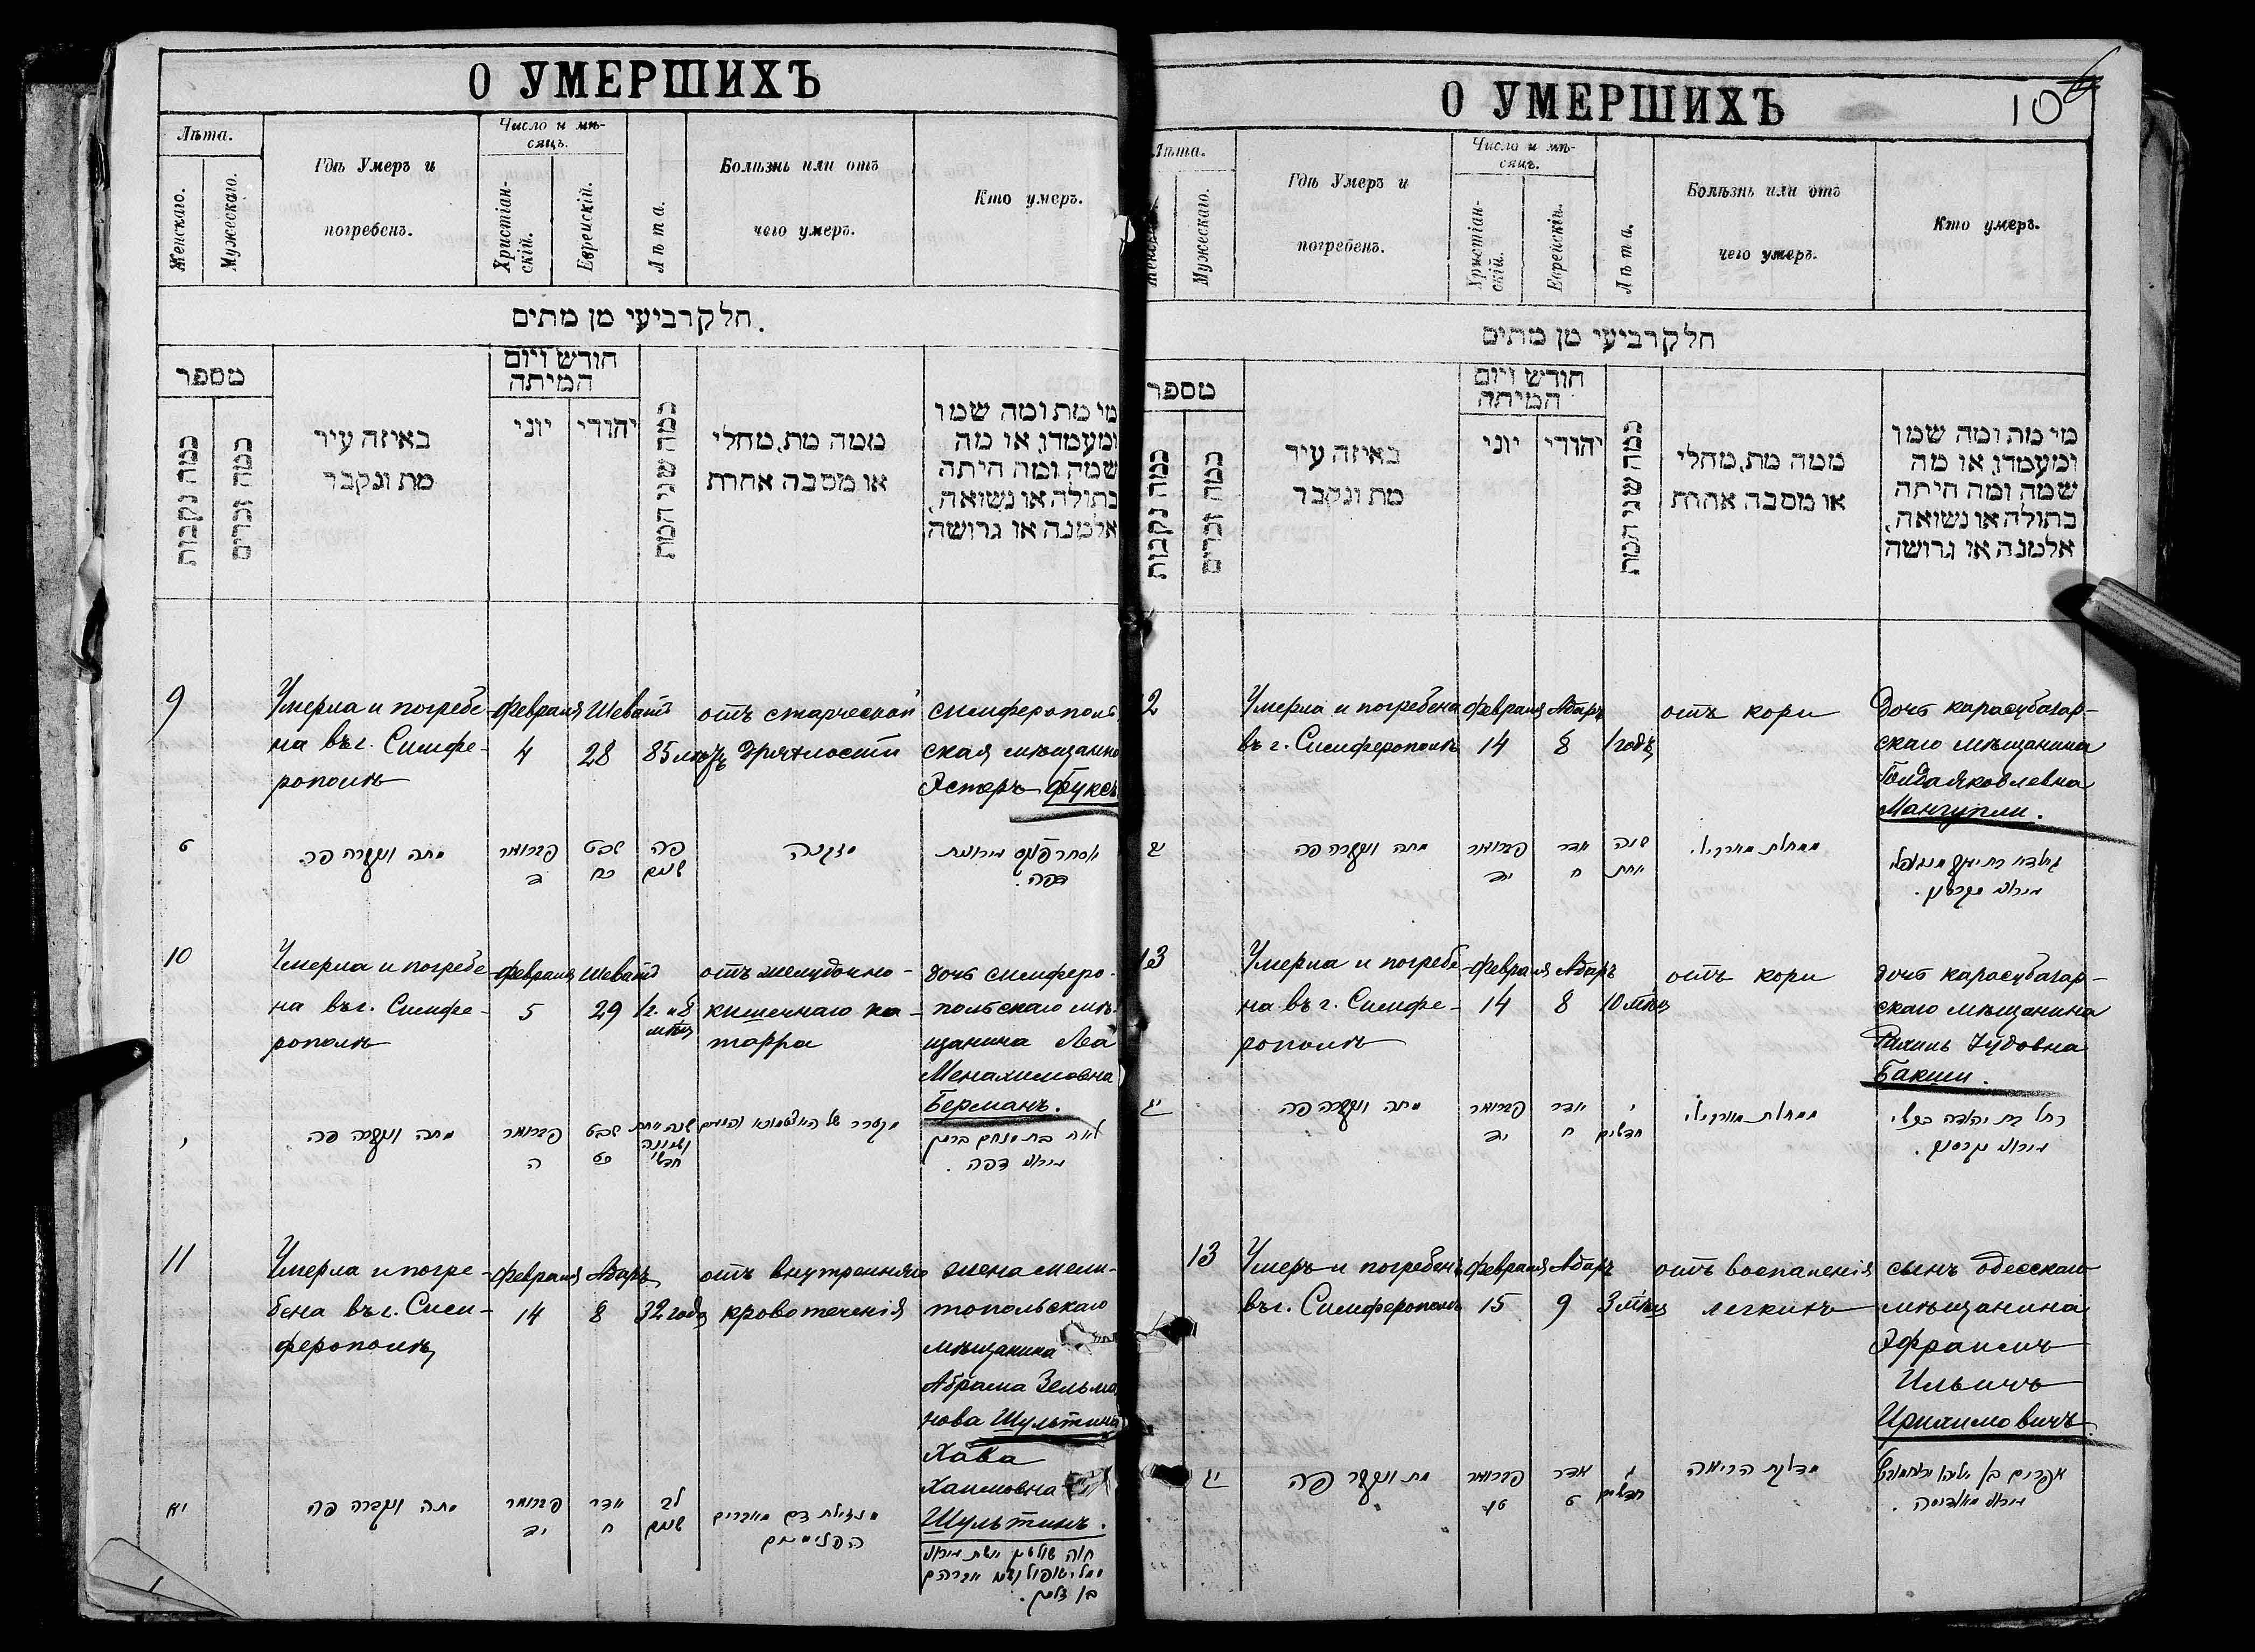 О УМЕРШИХЪ
Лѣта.
Женскаго.
Мужескаго.
Гдѣ Умеръ и
погребенъ.
Число и мѣ-
сяцъ.
Христіан-
скій.
Еврейскій.
Лѣта.
Болѣзнь или отъ
чего умеръ.
Кто умеръ.
חלק רביעי מן מתים.
מספר
כמה נקבות
כמה זכרים
באיזה עיר
מת ונקבר
חודש ויום
המיתה
יוני
יהודי
כמה שני המת
ממה מת, מחלי
או מסבה אחרת
מי מת ומה שמו
ומעמדו, או מה
שמה ומה היתה
בתולה או נשואה,
אלמנה או גרושה
9
Умерла и погребе-
на въ г. Симфе-
рополѣ
февраля
4
Шеватъ
28
85 лѣтъ
отъ старческой
дряхлости
симферополь
ская мѣщанка
Эстеръ Фуксъ
ט
מתה ונקברה פה
פברואר
ד
שבט
כח
פה
שנים
מזקנה
אסתר פוקס
דפה.
10
Умерла и погребе-
на въ г. Симфе-
рополѣ
февраля
5
Шеватъ
29
1 г. и 8
мѣс
отъ желудочно-
кишечнаго ка-
тарра
дочь симферо-
польскаго мѣ-
щанина Лея
Менахимовна
Берманъ.
י
מתה ונקברה פה
פברואר
ה
שבט
כט
שנה אחת
ושמונה
חדשי
לאה בת מנחם ברמן
דפה.
11
Умерла и погре-
бена въ г. Сим-
ферополѣ
февраля
14
Адаръ
8
32 года
отъ внутренняго
кровотеченія
жена мели-
топольскаго
мѣщанина
Абрама Зельма
нова Шультина
Хава
Хаимовна
Шультинъ.
יא
מתה ונקברה פה
פברואר
יד
אדר
ח
לב
שנים
מנזילת דם מאברים
הפנימים
חוה שולטין אשת
אברהם
בן זלמן.
О УМЕРШИХЪ
10
Лѣта.
Женскаго.
Мужескаго.
Гдѣ Умеръ и
погребенъ.
Число и мѣ-
сяцъ.
Христіан-
скій.
Еврейскій.
Лѣта.
Болѣзнь или отъ
чего умеръ.
Кто умеръ.
חלק רביעי מן מתים
מספר
כמה נקבות
כמה זכרים
באיזה עיר
מת ונקבר
חודש ויום
המיתה
יוני
יהודי
כמה שני המת
ממה מת, מחלי
או מסבה אחרת
מי מת ומה שמו
ומעמדו, או מה
שמה ומה היתה
בתולה או נשואה,
אלמנה או גרושה
12
Умерла и погребена
въ г. Симферополѣ
февраля
14
Адаръ
8
1 годъ
отъ кори
Дочь карасубазар-
скаго мѣщанина
Яковлевна
Мангупли.
יב
מתה ונקברה פה
פברואר
יד
אדר
ח
שנה
אחת
ממחלת
13
Умерла и погребе-
на въ г. Симфе-
рополѣ
февраля
14
Адаръ
8
10 мѣс
отъ кори
дочь карасубазар-
скаго мѣщанина
Рахиль Іудовна
Бакши.
יג
מתה ונקברה פה
פברואר
יד
אדר
ח
י
חדשים
ממחלת
רחל בת יהודה בקשי
13
Умеръ и погребенъ
въ г. Симферополѣ
февраля
15
Адаръ
9
3 мѣс
отъ воспаленія
легкихъ
сынъ одесскаго
мѣщанина
Эфраимъ
Ильичъ
Ирихимовичъ.
יג
מת ונקבר פה
פברואר
טו
אדר
ט
ג
חדשים
מדלקת הריאה
אפרים בן אליהו
מאדיסה.